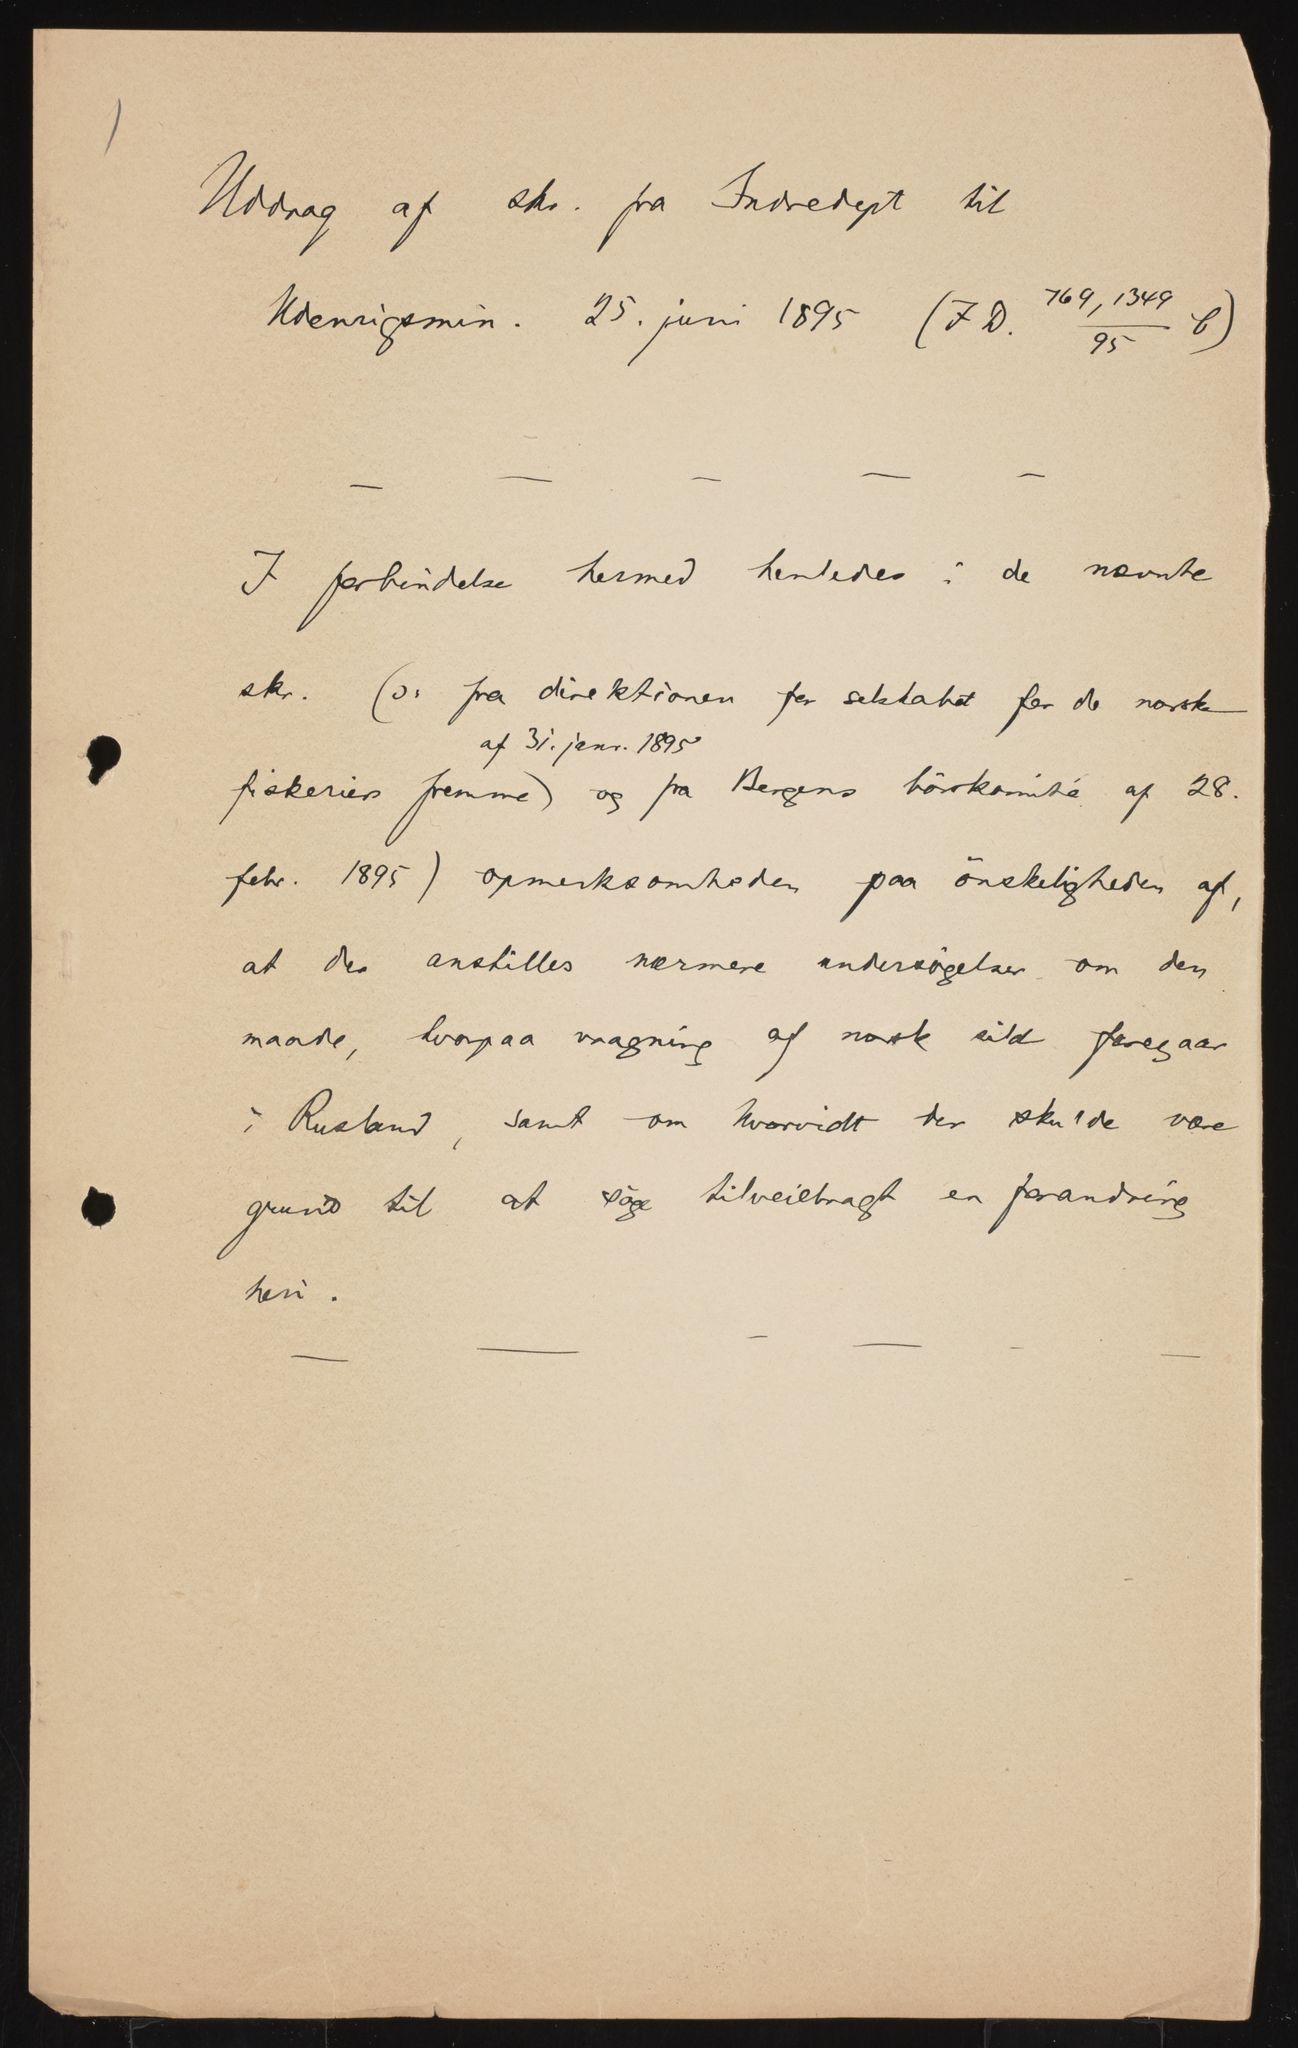 Uddrag af skr. fra Indredept til
Udenrigsmin. 25. juni 1895 (I D. 769, 1349/95 C)
— — — — —
I forbindelse hermed henledes i de nævnte
skr. (ɔ: fra direktionen for selskabet for de norske
af 31. janr. 1895
fiskeriers fremme) og fra Bergens börskomité af 28.
febr. 1895) opmerksomheden paa önskeligheden af,
at der anstilles nærmere undersögelser om den
maade, hvorpaa vragning af norsk sild foregaar
i Rusland, samt om hvorvidt der skulde være
grund til at söge tilveiebragt en forandring
heri.
— — — — — —